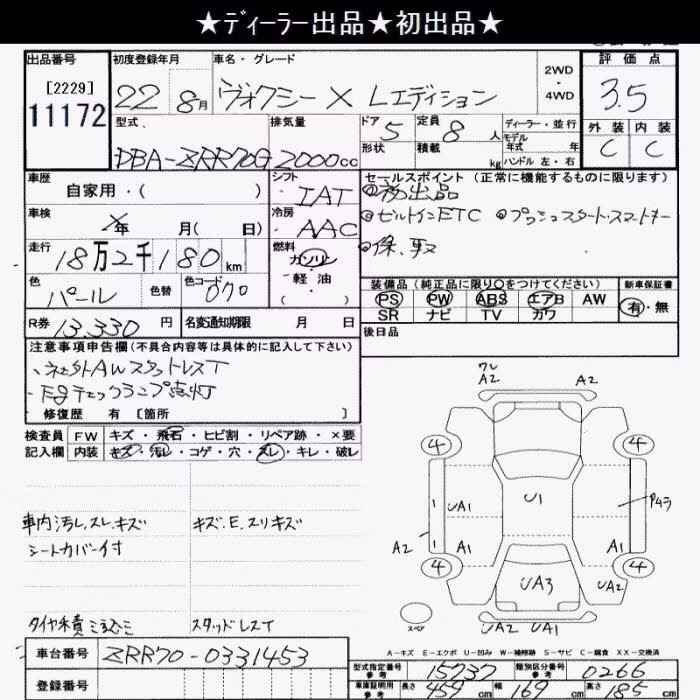 ★ディーラー出品★初出品★
出品番号 初度登録年月 車名・グレード 2WD・4WD 評価点
[2229] 11172 22 8月 ヴォクシー X Lエディション 3.5
型式 排気量 ドア 5 定員 8人 ディーラー・並行 外装 内装
形状 積載 kg モデル年式 年 C C
DBA-ZRR70G 2000cc ハンドル 左・右
車歴 シフト セールスポイント (正常に機能するものに限ります)
自家用・( ) IAT ◎初出品
車検 年 月( 日) 冷房 AAC ◎ビルトインETC ◎プッシュスタート・スマートキー
走行 18万2千180km 燃料 ガソリン・軽油・( )
色 パール 色替 色コード 070 装備品 (純正品に限り○をつけてください) 新車保証書
PS PW ABS エアB AW 有・無
SR ナビ TV カワ
R券 13,330円 名変通知期限 月 日 後日品
注意事項申告欄(不具合内容等は具体的に記入して下さい)
・社外AWスタットレスT
・E/Gチェックランプ点灯
修復歴 有 [箇所 ]
検査員 FW キズ・飛石・ヒビ割・リペア跡・×要
記入欄 内装 キズ・汚レ・コゲ・穴・スレ・キレ・破レ
ワレ
A2 A2
4 4
UA1 U1 Pムラ
A2 A1 A1
4 4
UA3 UA2
スペア UA2 UA1
車内汚レ,スレ,キズ キズ,E,スリキズ
シートカバー付
スタッドレスT
A-キズ E-エクボ U-凹み W-補修跡 S-サビ C-腐食 XX-交換済
車台番号 ZRR70-0331453
型式指定番号 参考 15737 類別区分番号 参考 0266
登録番号 車庫証明用 参考 長さ 459cm 幅 169cm 高さ 185cm